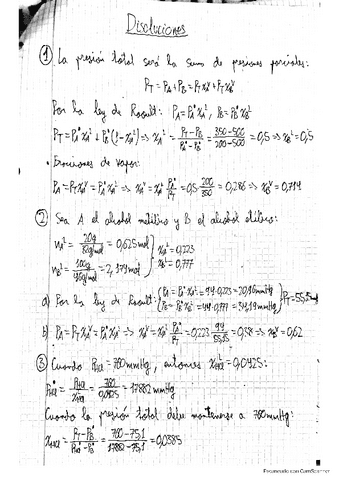 Disoluciones
① La presión total será la suma de presiones parciales:
P_T = P_A + P_B = P_T x_A^v + P_T x_B^v
Por la ley de Raoult: P_A = P_A^* x_A^L, P_B = P_B^* x_B^L
P_T = P_A^* x_A^L + P_B^* (1 - x_A^L) ⇒ x_A^L = (P_T - P_B^*)/(P_A^* - P_B^*) = (350 - 500)/(200 - 500) = 0,5 ⇒ x_B^L = 0,5
• Fracciones de vapor:
P_A = P_T x_A^v = P_A^* x_A^L ⇒ x_A^v = x_A^L P_A^*/P_T = 0,5 · 200/350 = 0,286 ⇒ x_B^v = 0,714
② Sea A el alcohol metílico y B el alcohol etílico:
n_A^L = 20g / 32g/mol = 0,625 mol } x_A^L = 0,223
n_B^L = 100g / 46g/mol = 2,179 mol } x_B^L = 0,777
a) Por la ley de Raoult: { P_A = P_A^* x_A^L = 94 · 0,223 = 20,96 mmHg
P_B = P_B^* x_B^L = 44 · 0,777 = 34,19 mmHg } P_T =
b) P_A = P_T x_A^v = P_A^* x_A^L ⇒ x_A^v = x_A^L P_A^*/P_T = 0,223 · = 0,38 ⇒ x_B^v = 0,62
③ Cuando = 760 mmHg, entonces = 0,0425:
= 760/0,0425 = 17882 mmHg
Cuando la presión total debe mantenerse a 760 mmHg:
= (760 - 75,1)/(17882 - 75,1) = 0,0385
Escaneado con CamScanner